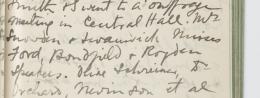 Smith & I went to a suffrage
meeting in Central Hall. Mr
Snowden & Swanwick Misses
Ford, Bondfield & Royden
Speakers. Olive Schreiner, Dr
Orchard, Nevinson et al